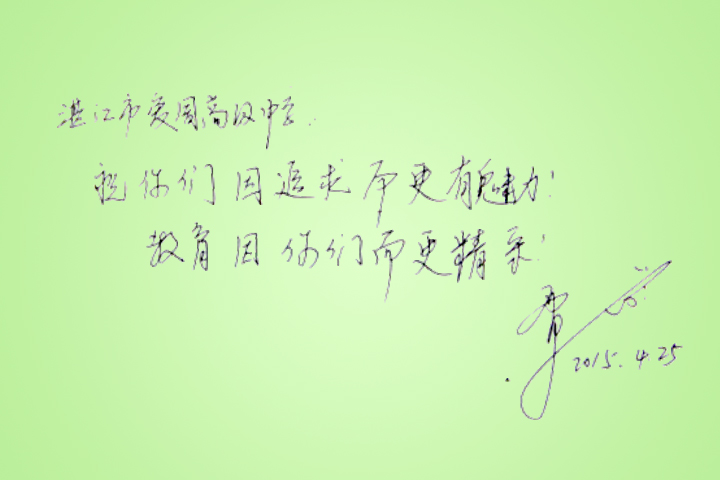 湛江市爱周高级中学:
祝你们因追求而更有魅力!
教育因你们而更精彩!
2015.4.25